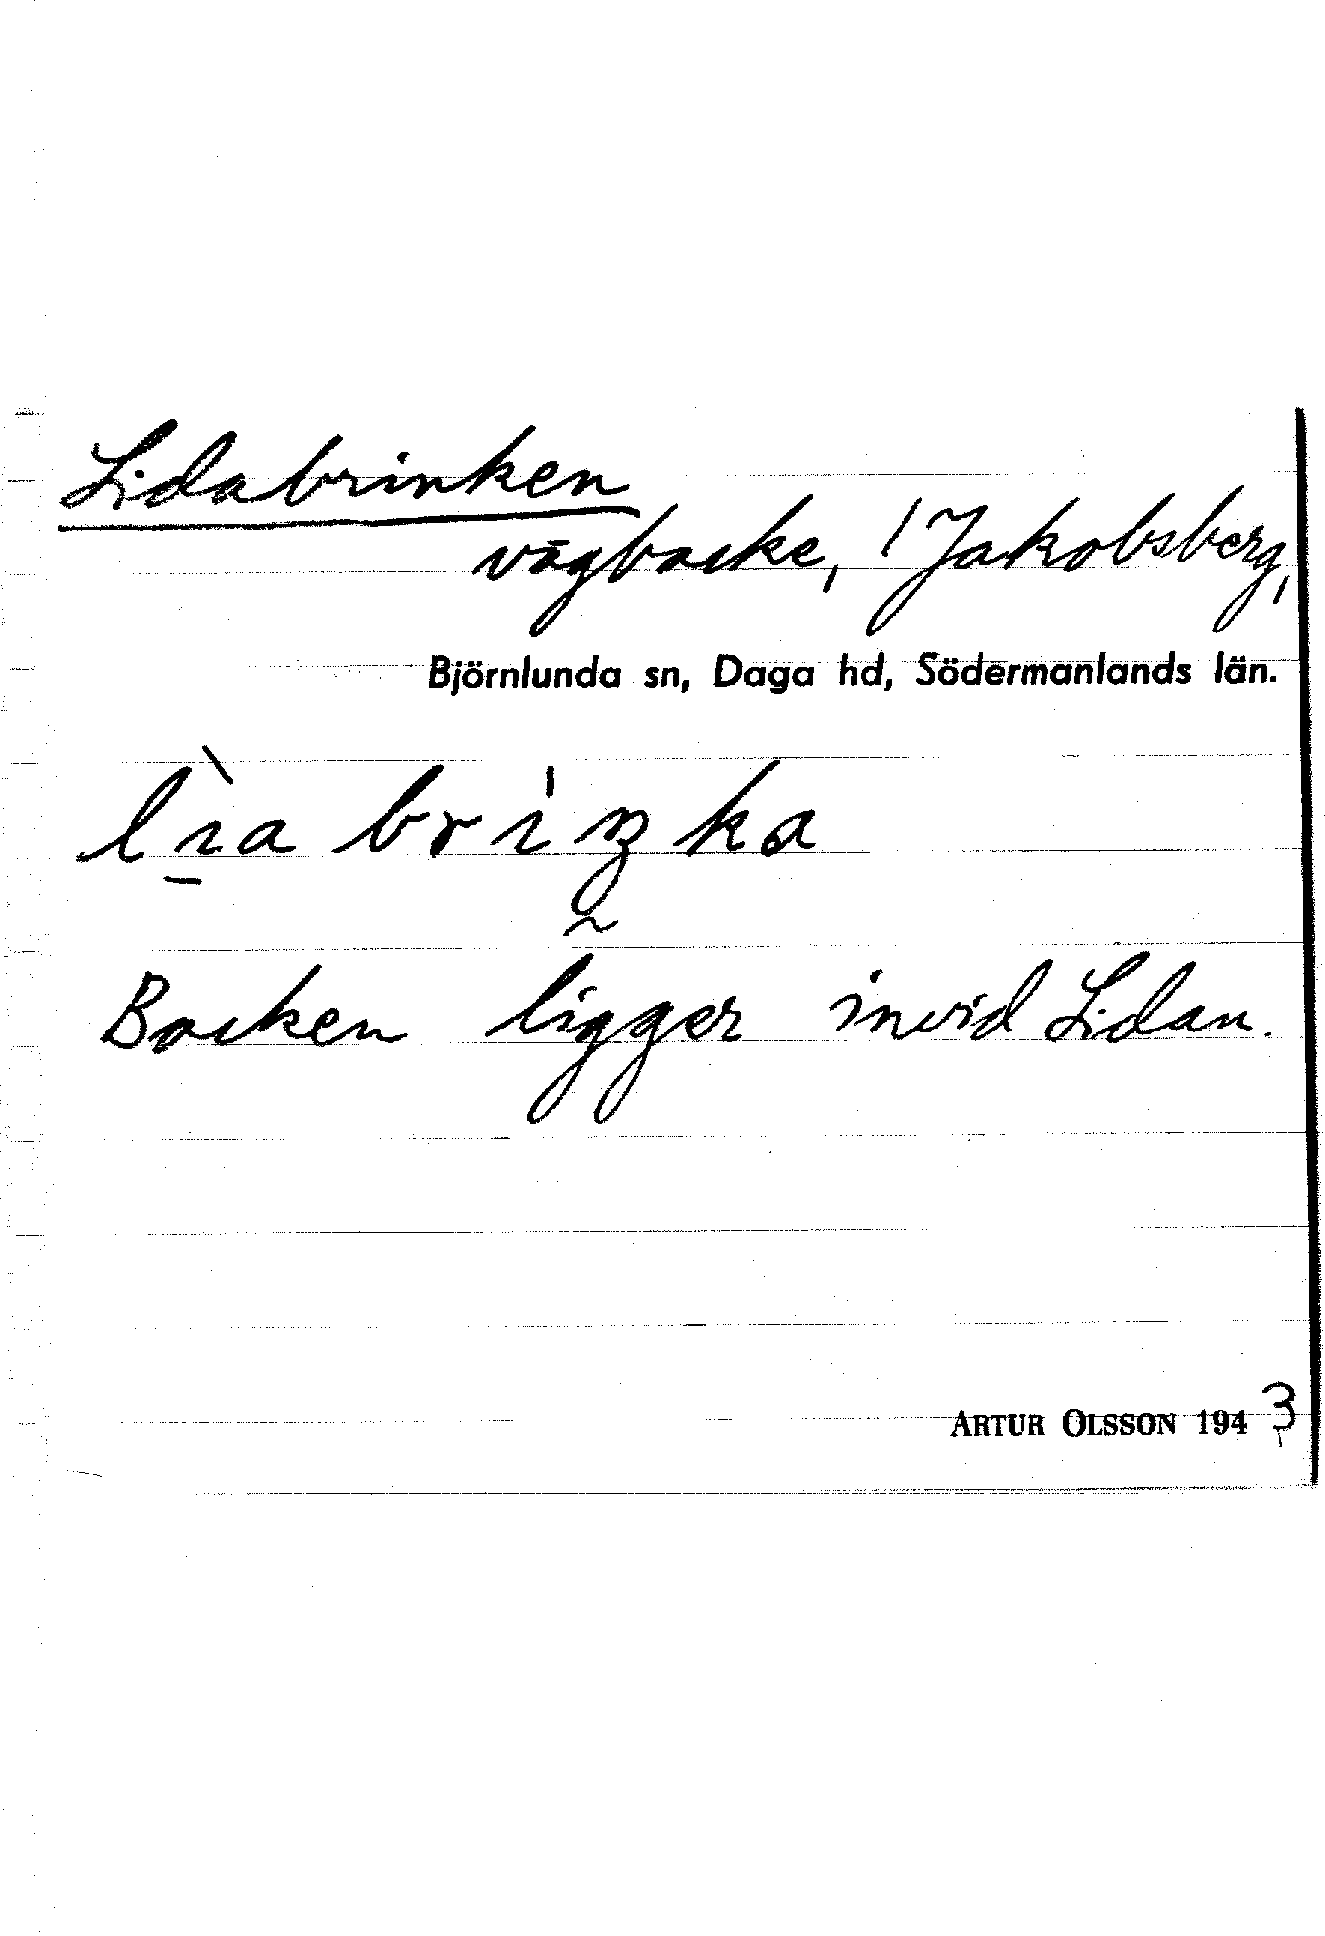 Lidabrinken
vägbacke, / Jakobsberg,
Björnlunda sn, Daga hd, Södermanlands län.
lìa brıŋka
Backen ligger invid Lidan.
ARTUR OLSSON 1943